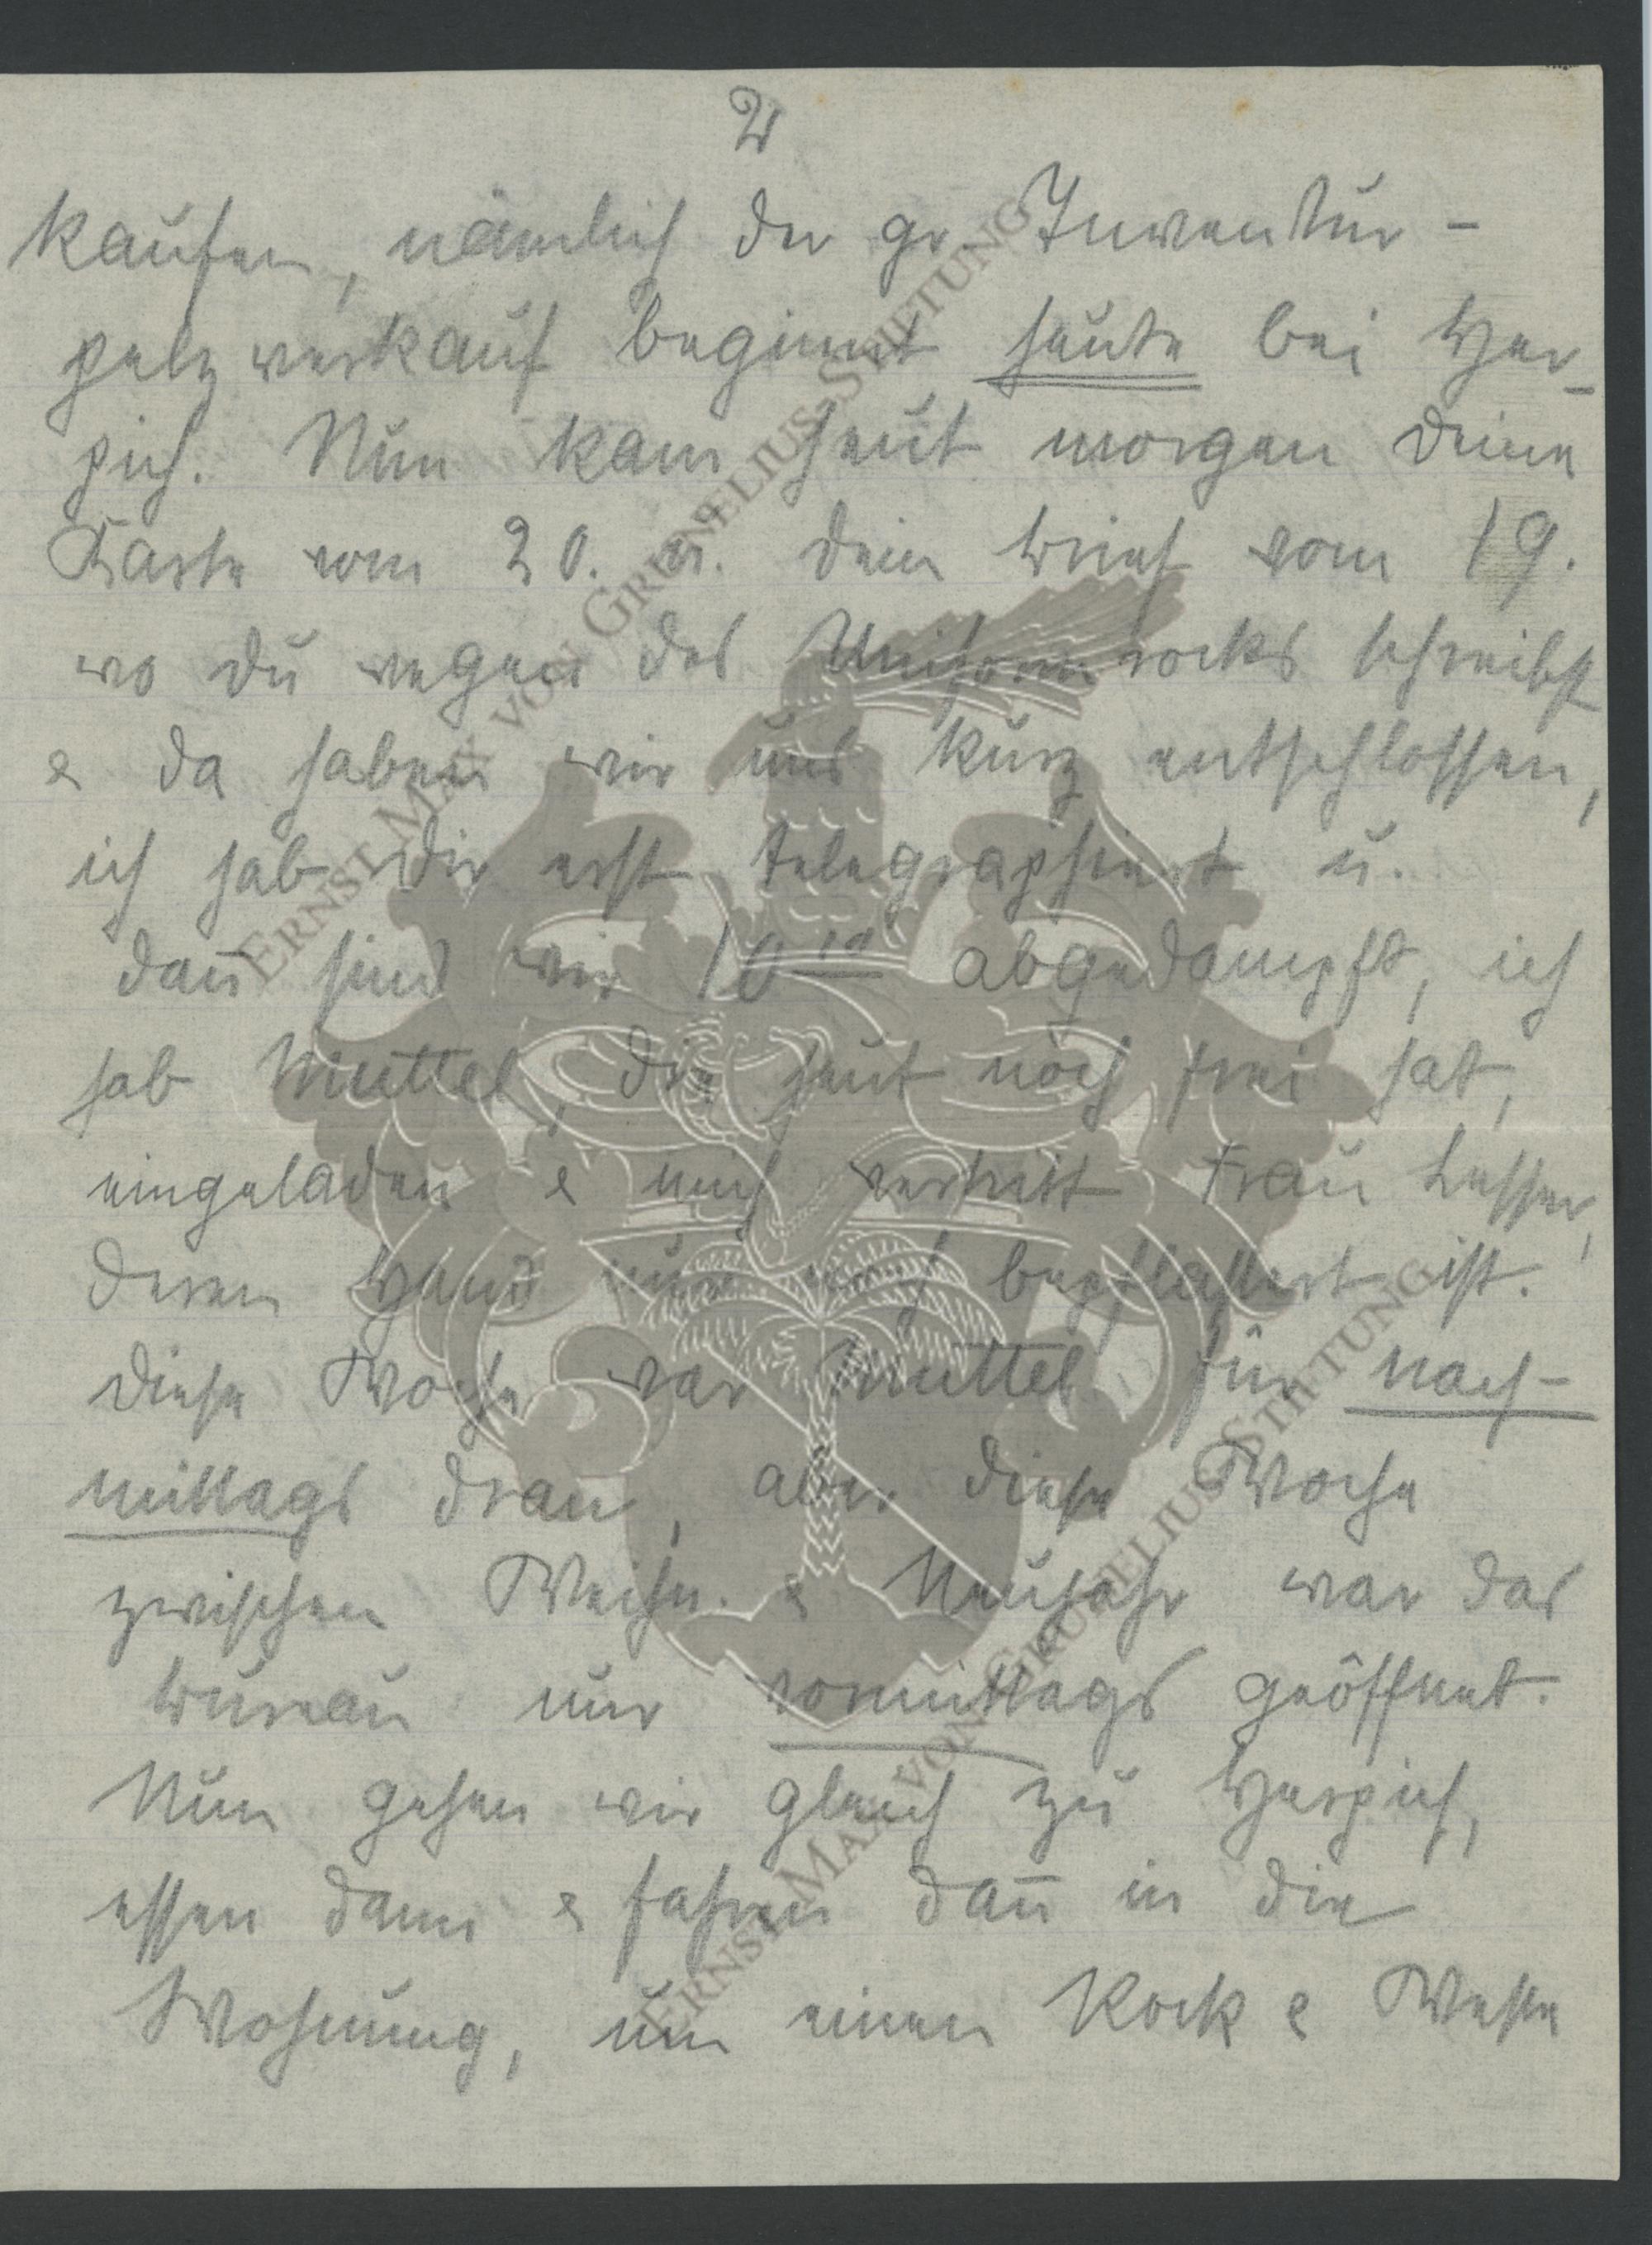 2
kaufen, nämlich der gr. Inventur-
pelzverkauf beginnt heute bei Her-
pich. Nun kam heut morgen deine
Karte vom 20. u. dein Brief vom 19.
wo du wegen des Uniformrocks schreibst
& da haben wir uns kurz entschlossen,
ich hab dir erst telegraphiert u.
dan̄ sind wir 10 abgedampft, ich
hab Muttel, die heut noch frei hat,
eingeladen & mich vertritt Frau Lesser,
deren Hand nur noch bepflastert ist.
Diese Woche war Muttel für nach-
mittags dran, aber diese Woche
zwischen Weihn. & Neujahr war das
Bureau nur vormittags geöffnet.
Nun gehen wir gleich zu Herpich,
essen dann & fahren dan̄ in die
Wohnung, um einen Rock & Weste
ERNST MAX VON GRUNELIUS-STIFTUNG
ERNST MAX VON GRUNELIUS-STIFTUNG